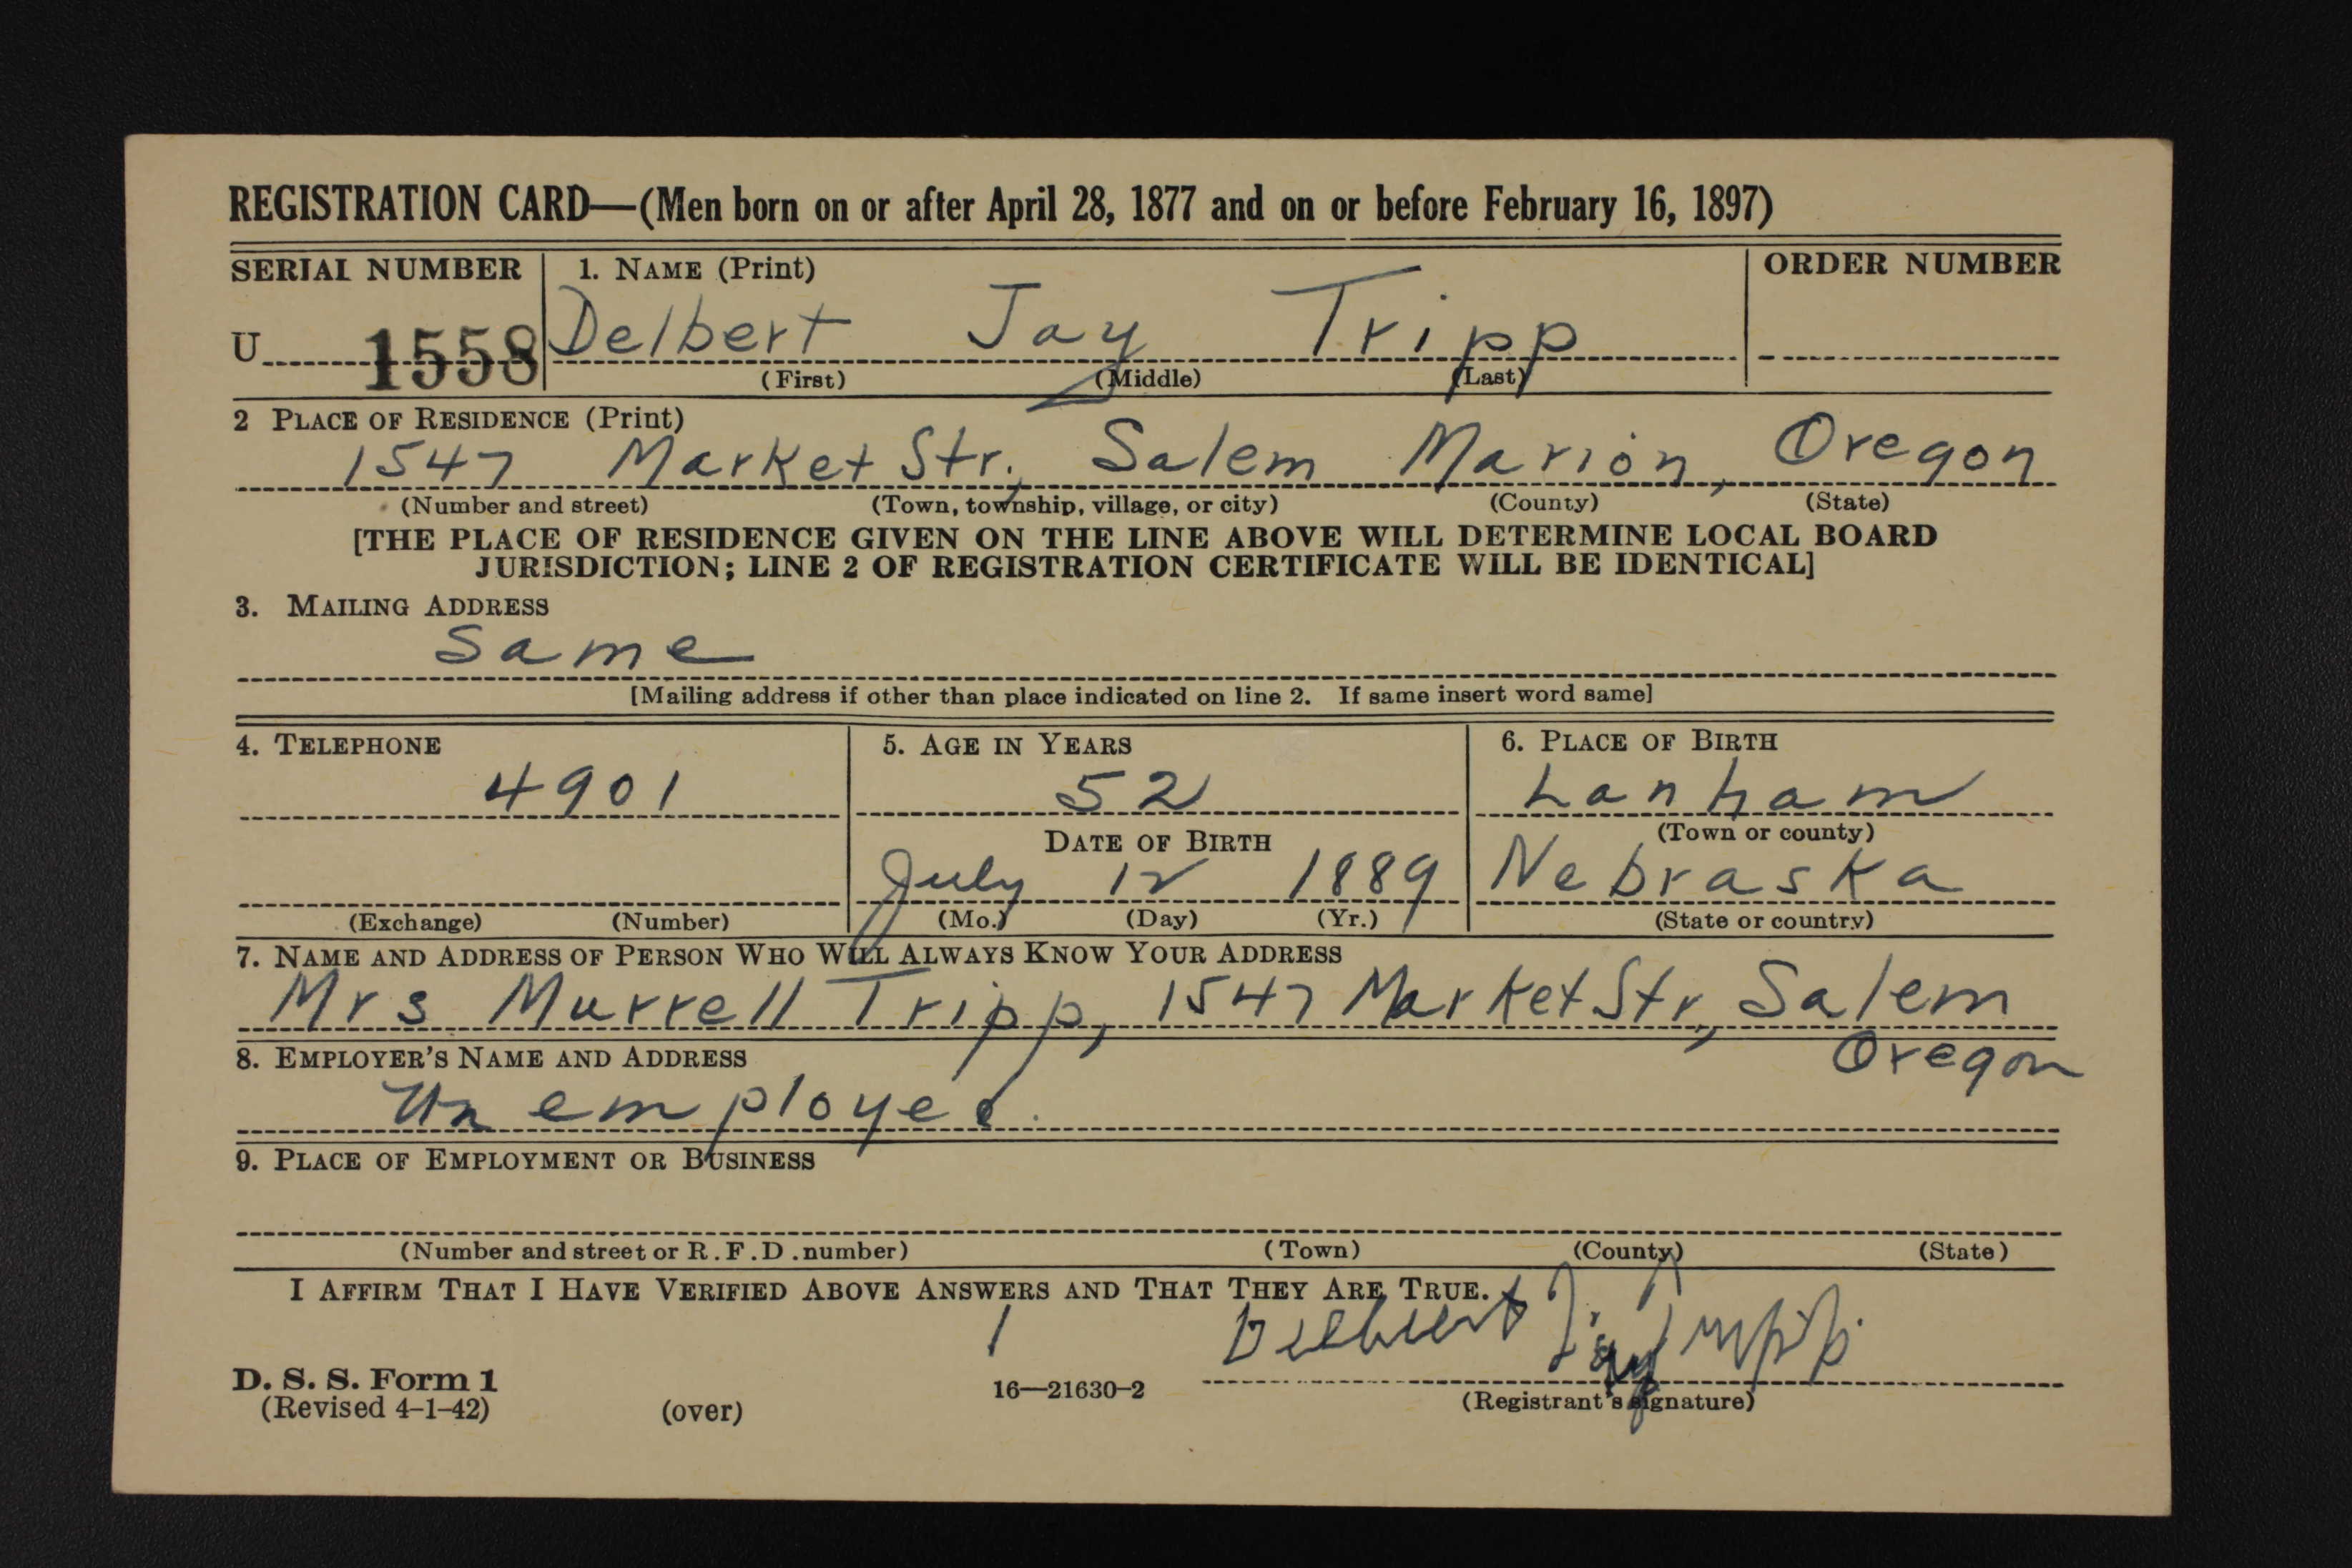 REGISTRATION CARD—(Men born on or after April 28, 1877 and on or before February 16, 1897)
SERIAL NUMBER 1. NAME (Print) ORDER NUMBER
U 1558 Delbert Jay Tripp
(First) (Middle) (Last)
2 PLACE OF RESIDENCE (Print)
1547 Market Str., Salem Marion, Oregon
(Number and street) (Town, township, village, or city) (County) (State)
[THE PLACE OF RESIDENCE GIVEN ON THE LINE ABOVE WILL DETERMINE LOCAL BOARD
JURISDICTION; LINE 2 OF REGISTRATION CERTIFICATE WILL BE IDENTICAL]
3. MAILING ADDRESS
Same
[Mailing address if other than place indicated on line 2. If same insert word same]
4. TELEPHONE 5. AGE IN YEARS 6. PLACE OF BIRTH
4901 52 Lanham
DATE OF BIRTH (Town or county)
July 12 1889 Nebraska
(Exchange) (Number) (Mo.) (Day) (Yr.) (State or country)
7. NAME AND ADDRESS OF PERSON WHO WILL ALWAYS KNOW YOUR ADDRESS
Mrs Murrell Tripp, 1547 Market Str., Salem
Oregon
8. EMPLOYER'S NAME AND ADDRESS
Unemployed.
9. PLACE OF EMPLOYMENT OR BUSINESS
(Number and street or R.F.D. number) (Town) (County) (State)
I AFFIRM THAT I HAVE VERIFIED ABOVE ANSWERS AND THAT THEY ARE TRUE.
Delbert Jay Tripp
D. S. S. Form 1
(Revised 4-1-42) (over) 16—21630-2 (Registrant's signature)